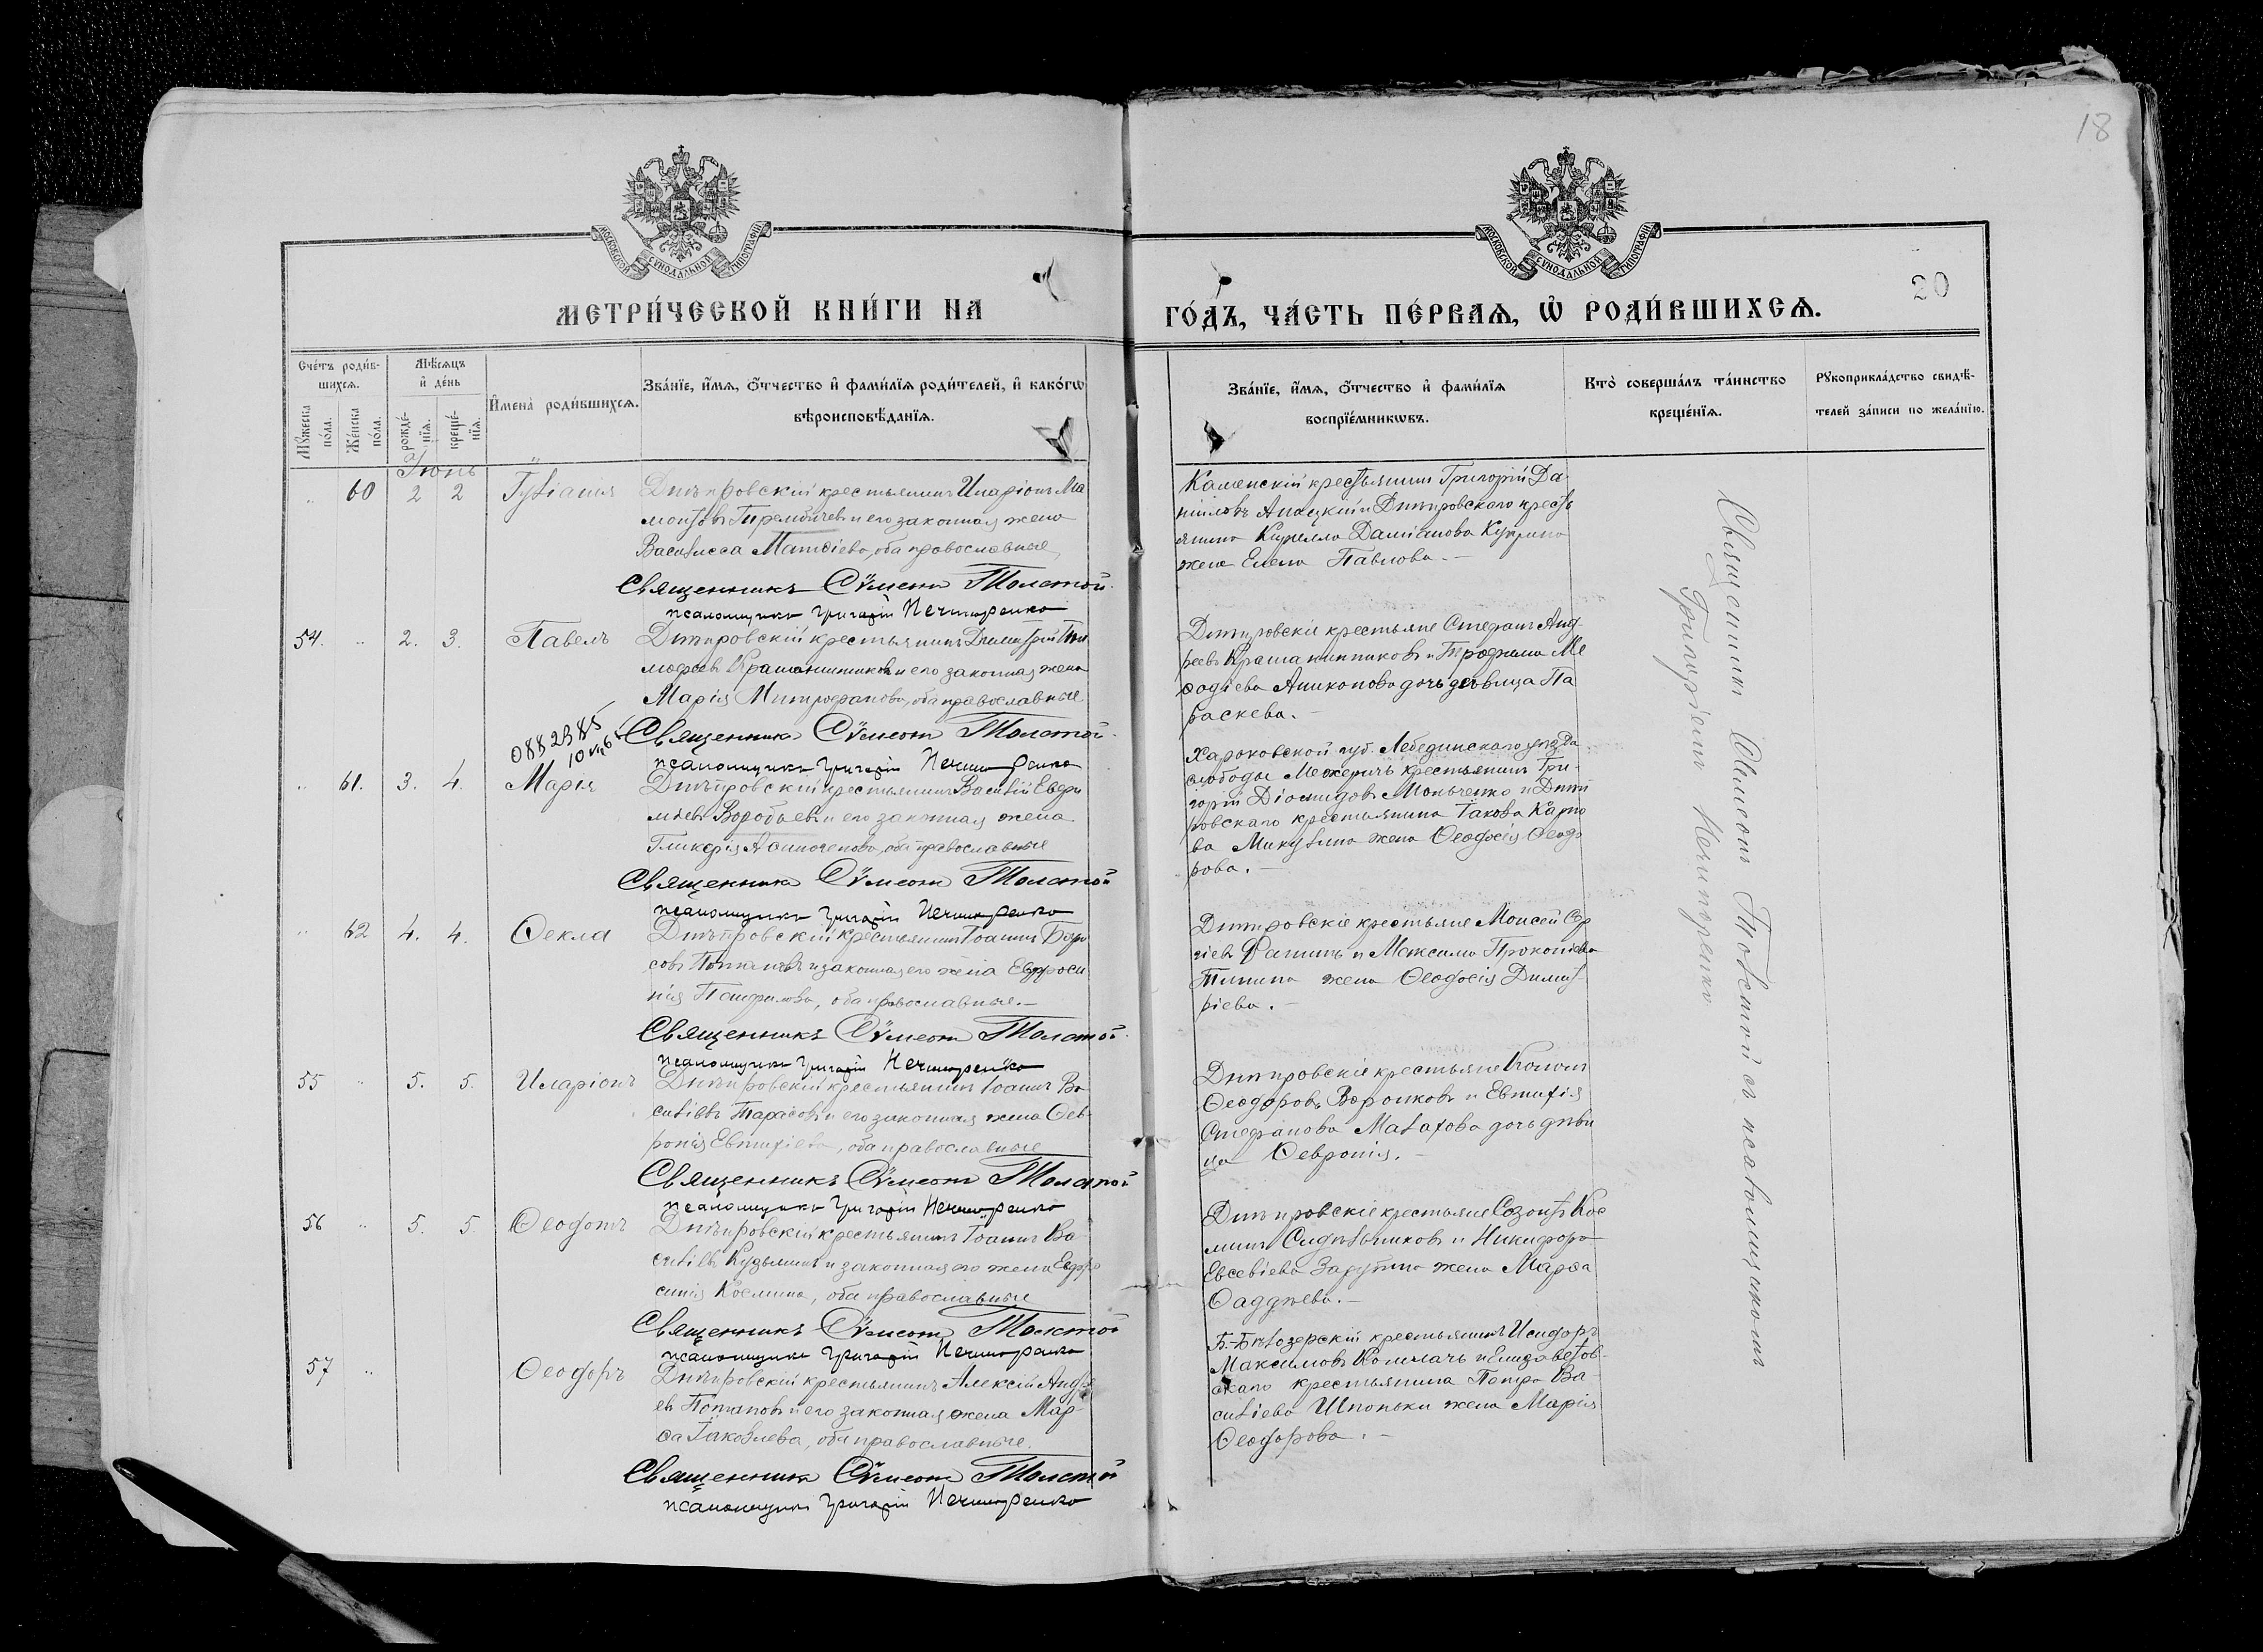 18
МОСКОВСКОЙ СѴНОДАЛЬНОЙ ТИПОГРАФІИ
МОСКОВСКОЙ СѴНОДАЛЬНОЙ ТИПОГРАФІИ
20
МЕТРИ́ЧЕСКОЙ КНИ́ГИ НА
ГО́ДЪ, ЧА́СТЬ ПЕ́РВАѦ, Ѡ҆ РОДИ́ВШИХСѦ.
Сче́тъ роди́в-
шихсѧ.
Мꙋ́жеска по́ла.
Же́нска по́ла.
Мѣ́сѧцъ
и҆ де́нь
рожде́-
нїѧ.
креще́-
нїѧ.
И҆мена̀ роди́вшихсѧ.
Зва́нїе, и҆́мѧ, ѻ҆́тчество и҆ фами́лїѧ роди́телей, и҆ како́гѡ
вѣроисповѣ́данїѧ.
Зва́нїе, и҆́мѧ, ѻ҆́тчество и҆ фами́лїѧ
воспрїе́мникѡвъ.
Кто̀ соверша́лъ та́инство
креще́нїѧ.
Рꙋкоприкла́дство свидѣ́-
телей за́писи по жела́нїю.
Іюнь
„ 60 2 2 Іуліанія Днѣпровскій крестьянинъ Иларіонъ Ма
монтовъ и его законная жена
Василисса Матѳіева, оба православные
Священникъ Сѵмеонъ Толстой
псаломщикъ Григорій Нечипоренко
Каменскій крестьянинъ Григорій Да-
ніиловъ и Днѣпровскаго кресть
янина Кирилла Даміанова
жена Елена Павлова. –
54. „ 2. 3. Павелъ Днѣпровскій крестьянинъ Димитрій Ти
мофеевъ Крашанинниковъ и его законная жена
Марія Митрофанова, оба православные
Священникъ Сѵмеонъ Толстой
псаломщикъ Григорій Нечипоренко
Днѣпровскіе крестьяне Стефанъ Анд-
реевъ Крашанинниковъ и Трофима Ме
ѳодіева Аниконова дочь дѣвица Па
раскева. –
0882385
„ 61. 3. 4. Марія Днѣпровскій крестьянинъ Василій Евѳи
міевъ Воробьевъ и его законная жена
Гликерія, оба православные
Священникъ Сѵмеонъ Толстой
псаломщикъ Григорій Нечипоренко
Харьковской губ. Лебединскаго уѣзда
слободы Межеричъ крестьянинъ Гри-
горій Діомидовъ и Днѣп
ровскаго крестьянина Іакова Карпо
ва Микулина жена Ѳеодосія Ѳеодо
рова. –
„ 62 4. 4. Ѳекла Днѣпровскій крестьянинъ Іоаннъ Бори
совъ и законная его жена Евфроси
нія Панфилова, оба православные. –
Священникъ Сѵмеонъ Толстой
псаломщикъ Григорій Нечипоренко
Днѣпровскіе крестьяне Моисей Сер
гіевъ и Максима Прокопіева
жена Ѳеодосія Димит
ріева. –
55 „ 5. 5. Иларіонъ Днѣпровскій крестьянинъ Іоаннъ Ва
силіевъ Тарасовъ и его законная жена Ѳев-
ронія Евтихіева, оба православные
Священникъ Сѵмеонъ Толстой
псаломщикъ Григорій Нечипоренко
Днѣпровскіе крестьяне Кононъ
Ѳеодоровъ Воронковъ и Евтихія
Стефанова Малахова дочь дѣви
ца Ѳевронія. –
56 „ 5. 5. Ѳеодотъ Днѣпровскій крестьянинъ Іоаннъ Ва
силіевъ Кузьминъ и законная его жена Евфро
синія Космина, оба православные
Священникъ Сѵмеонъ Толстой
псаломщикъ Григорій Нечипоренко
Днѣпровскіе крестьяне Созонтъ Кос
минъ Сидѣльниковъ и Никифора
Евсевіева Зарубина жена Марѳа
Ѳаддѣева. –
57 „ Ѳеодоръ Днѣпровскій крестьянинъ Алексій Андре
евъ Потаповъ и его законная жена Мар-
ѳа Іаковлева, оба православные.
Священникъ Сѵмеонъ Толстой
псаломщикъ Григорій Нечипоренко
Б.-Бѣлозерскій крестьянинъ Исидоръ
Максимовъ и Елизаветов-
скаго крестьянина Петра Ва-
силіева Шпоньки жена Марія
Ѳеодорова. –
Священникъ Симеонъ Толстой съ псаломщикомъ
Григоріемъ Нечипоренко